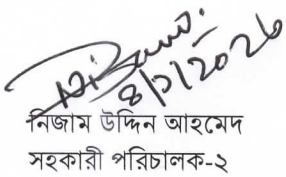 8/1/2026
নিজাম উদ্দিন আহমেদ
সহকারী পরিচালক-২